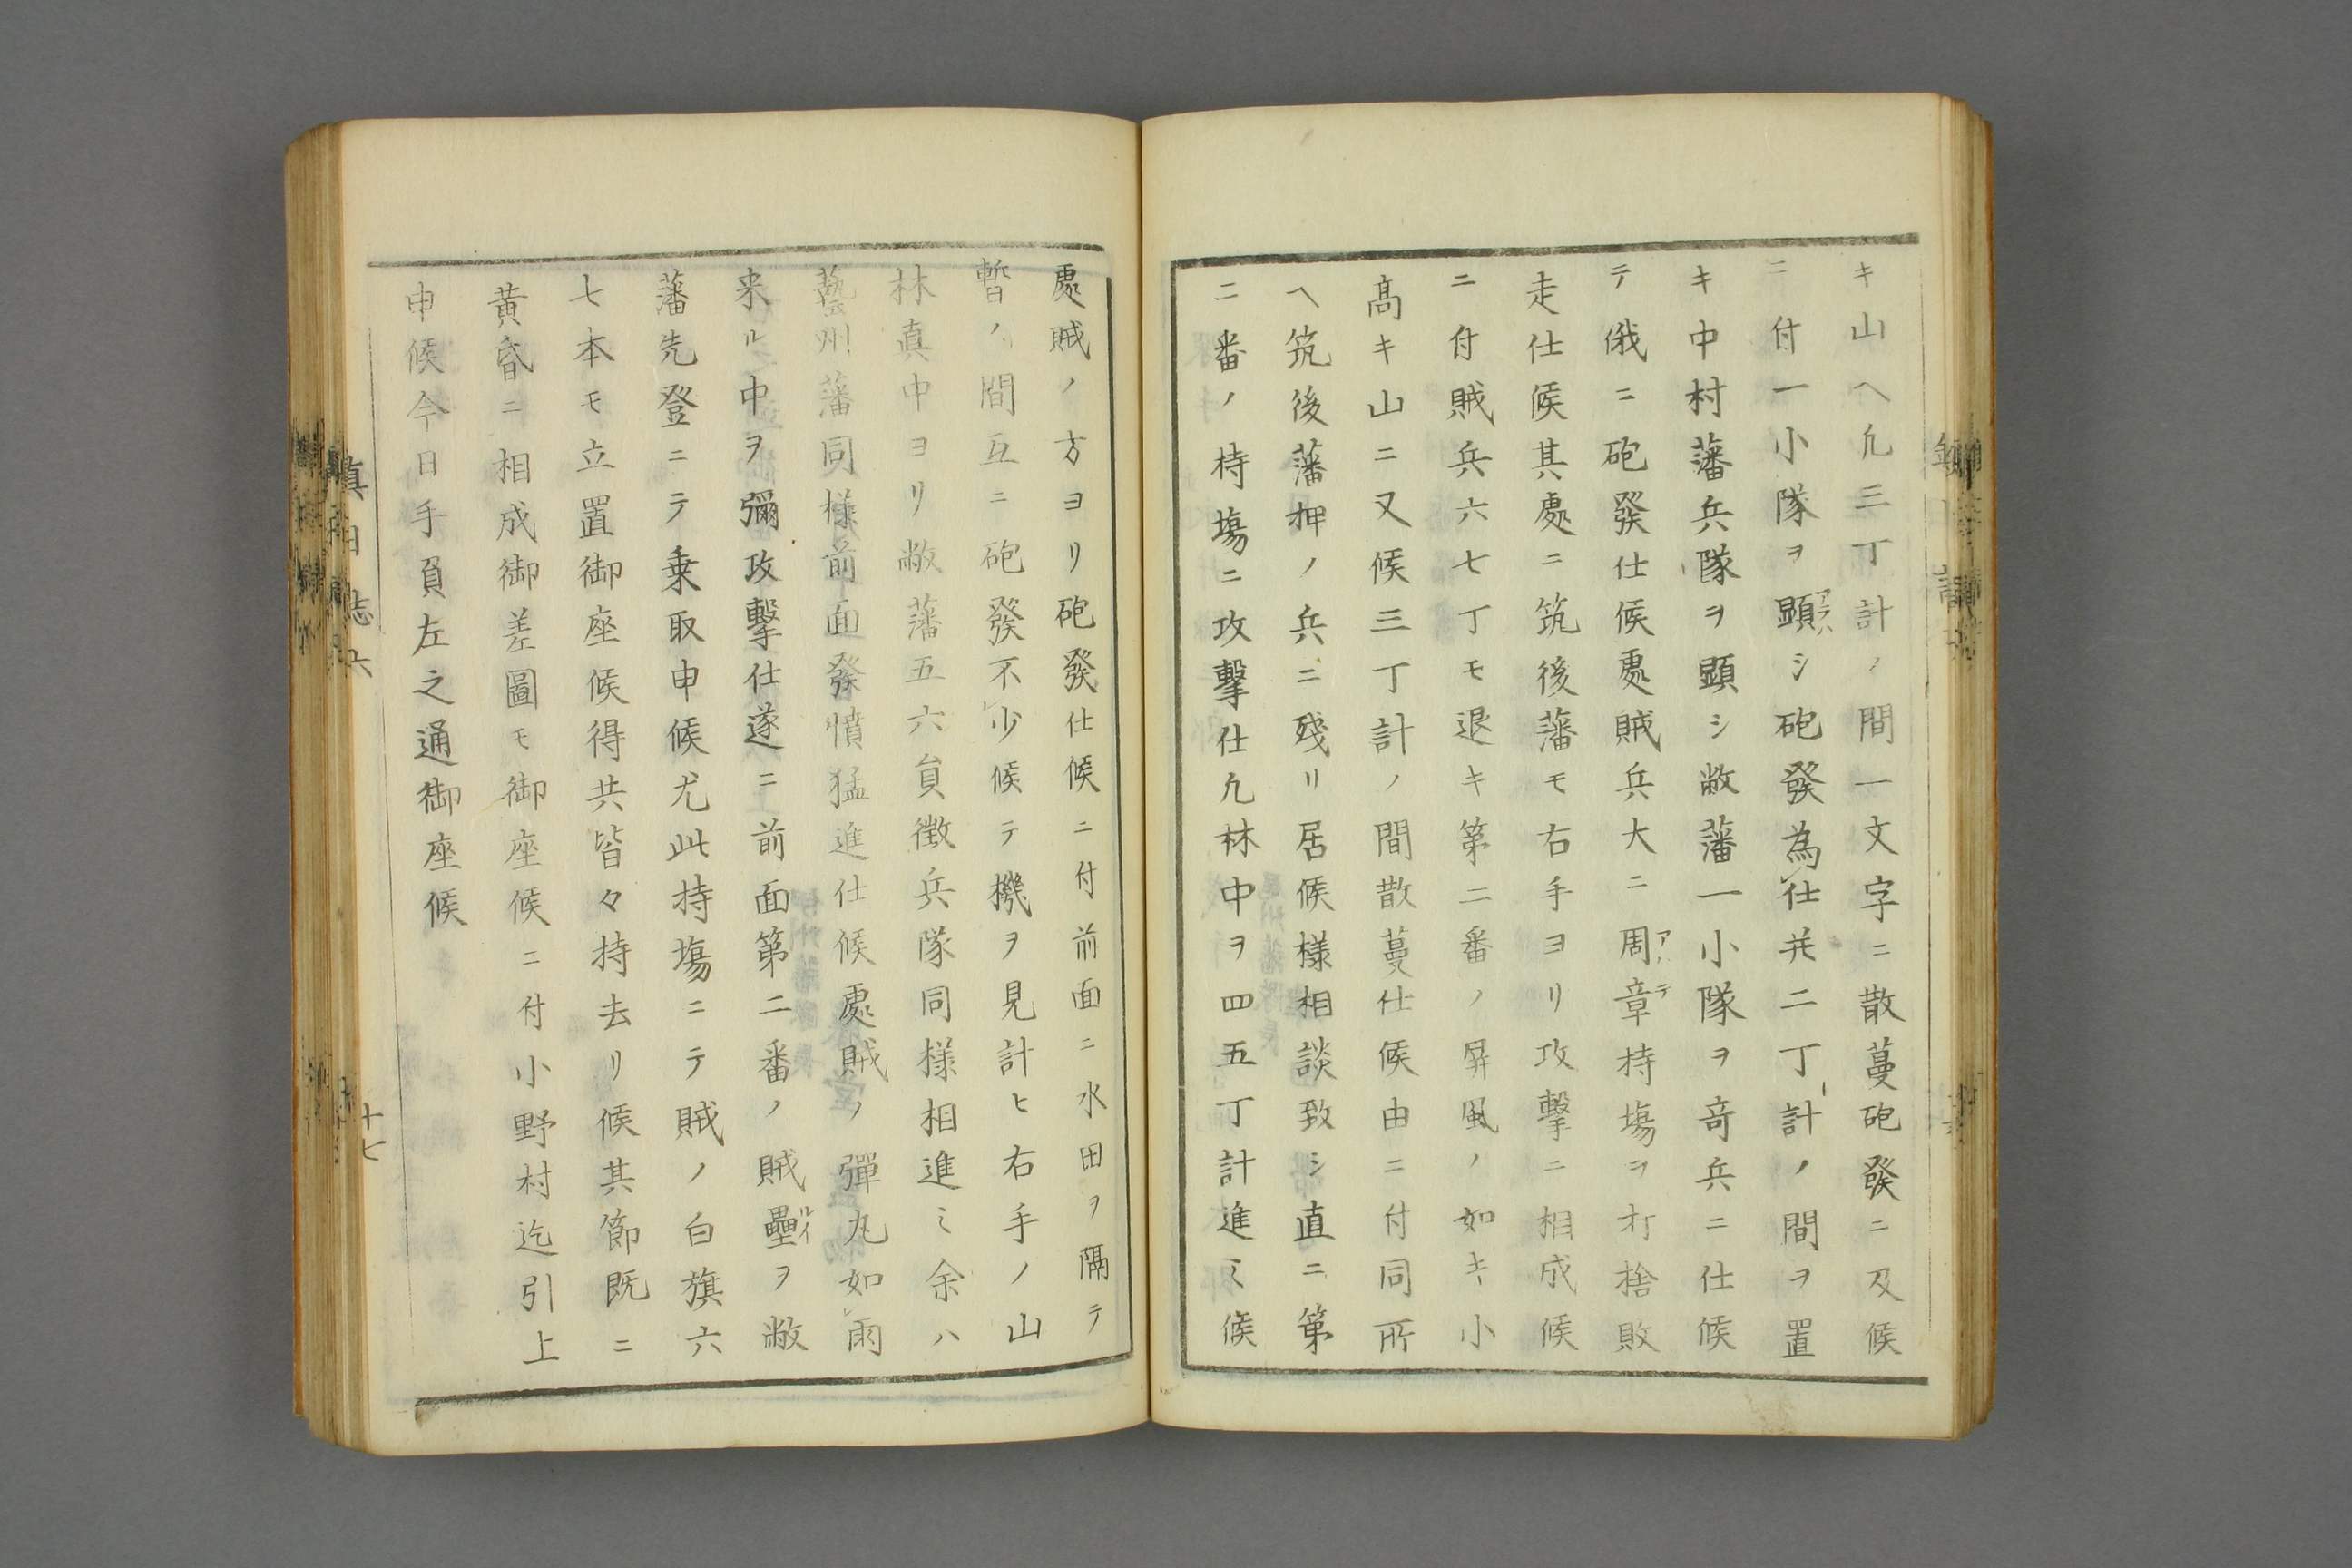 キ山ヘ凢三丁計ノ間一文字ニ散蔓砲發ニ及候
ニ付一小隊ヲ顕シ砲發為仕并二丁計ノ間ヲ置
キ中村藩兵隊ヲ顕シ敝藩一小隊ヲ竒兵ニ仕候
テ俄ニ砲發仕候處賊兵大ニ周章持塲ヲ打捨敗
走仕候其處ニ筑後藩モ右手ヨリ攻撃ニ相成候
ニ付賊兵六七丁モ退キ第二番ノ屏風ノ如キ小
髙キ山ニ又候三丁計ノ間散蔓仕候由ニ付同所
ヘ筑後藩押ノ兵ニ殘リ居候様相談致シ直ニ第
二番ノ持塲ニ攻撃仕凢林中ヲ四五丁計進ミ候
處賊ノ方ヨリ砲發仕候ニ付前面ニ水田ヲ隔テ
暫ノ間互ニ砲發不少候テ機ヲ見計ヒ右手ノ山
林真中ヨリ敝藩五六貟徴兵隊同様相進ミ余ハ
藝州藩同様前面發憤猛進仕候處賊ノ彈丸如雨
来ル中ヲ彌攻撃仕遂ニ前面第二番ノ賊壘ヲ敝
藩先登ニテ乗取申候尤此持塲ニテ賊ノ白旗六
七本モ立置御座候得共皆々持去リ候其節既ニ
黄昏ニ相成御差圖モ御座候ニ付小野村迄引上
申候今日手負左之通御座候
十七